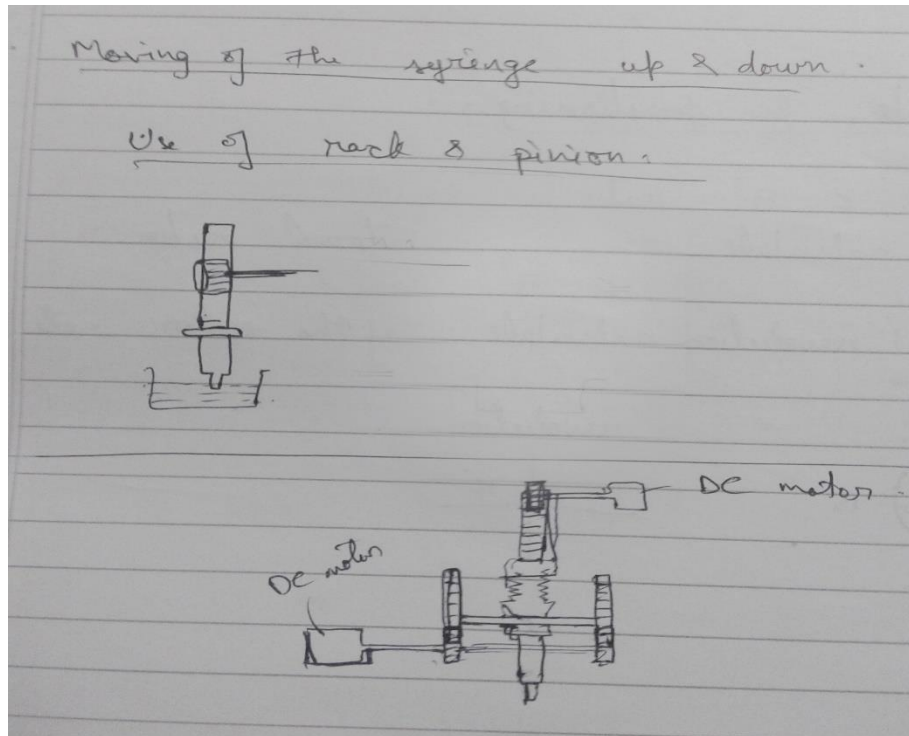 Moving of the syringe up & down.
Use of rack & pinion.
DC motor.
DC motor